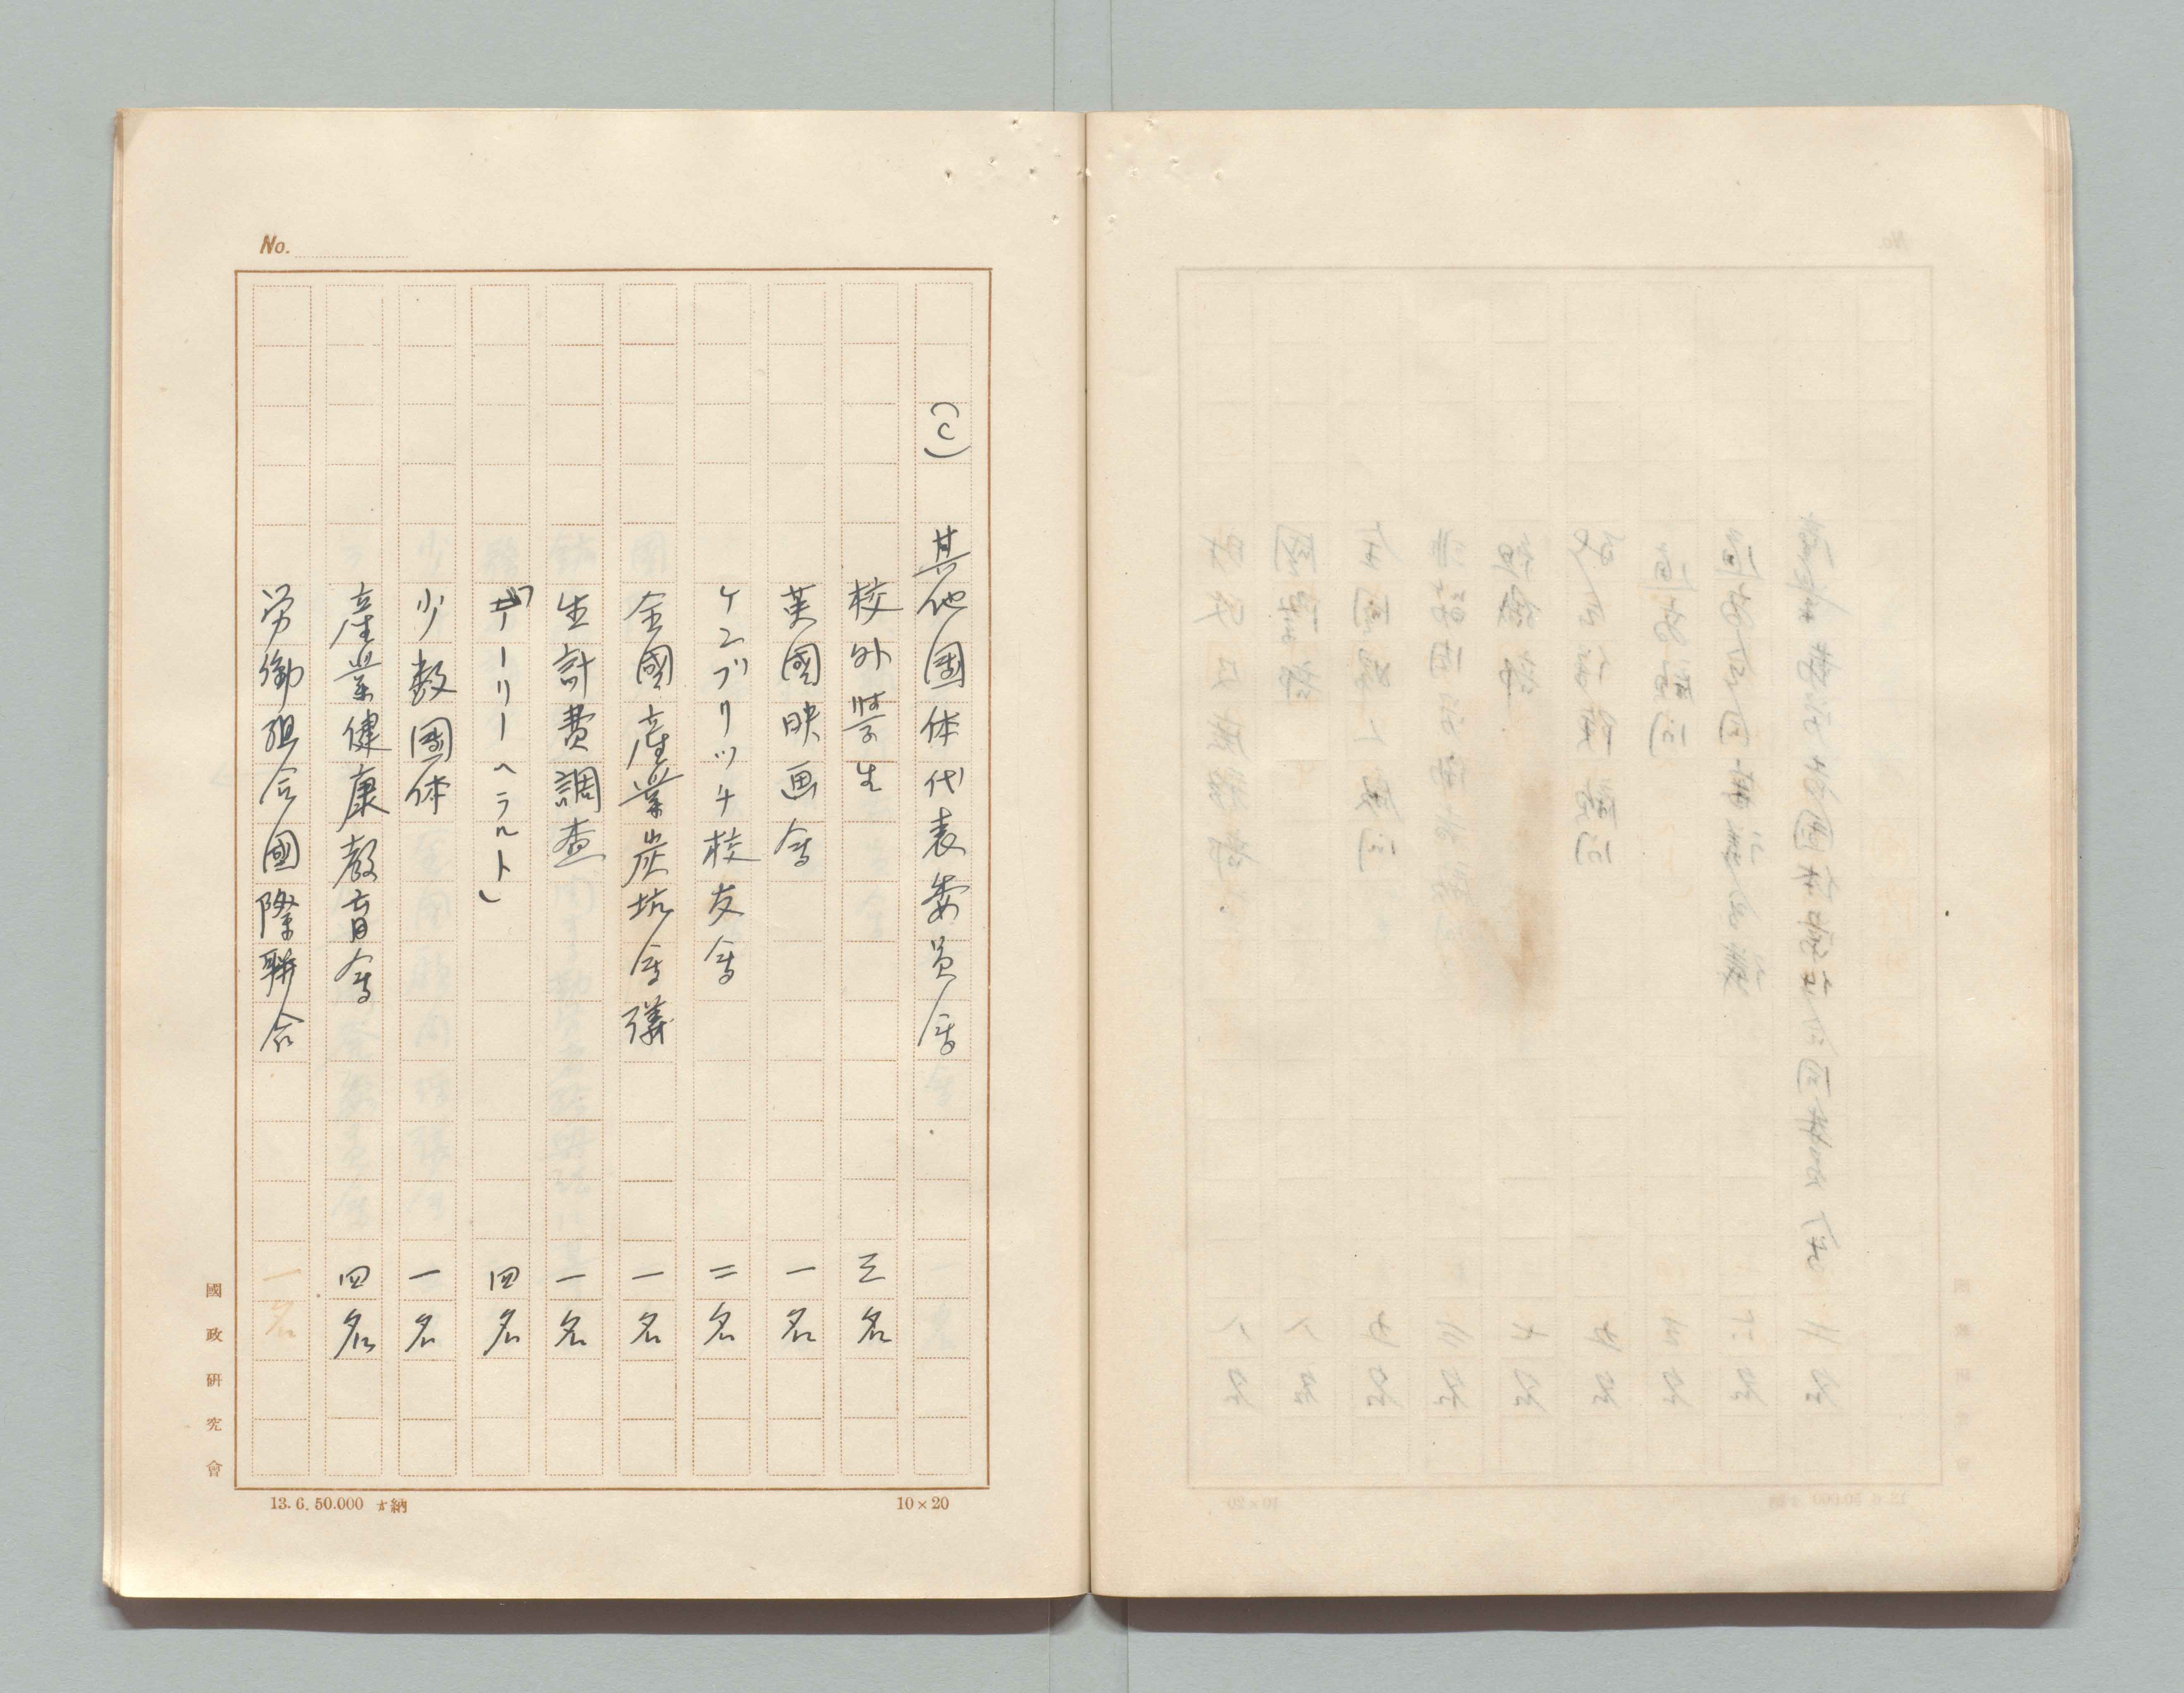 No.
(C) 其他團体代表委員会
校外学生 三名
英國映画会 一名
ケンブリッチ校友会 二名
全國産業炭坑会議 一名
生計費調査 一名
「デーリーヘラルト」 四名
少数團体 一名
産業健康教育会 四名
労働組合國際聯合 一名
國政研究會
13.6.50.000 納
10×20